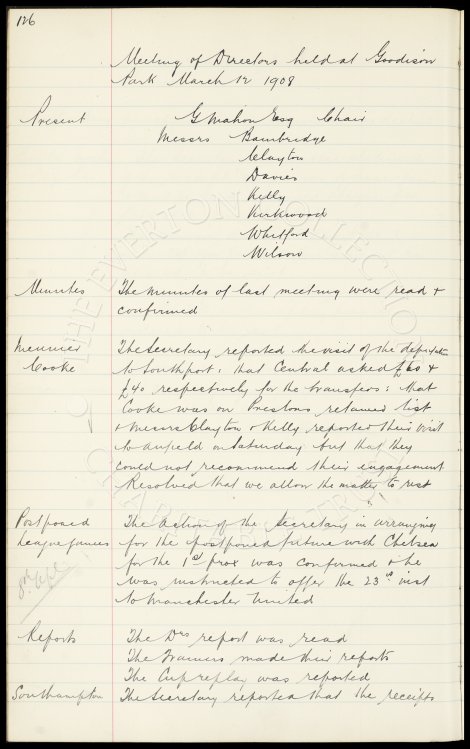 126
Meeting of Directors held at Goodison
Park March 12 1908
Present G Mahon Esq Chair
Messrs Bainbridge
Clayton
Davies
Kelly
Kirkwood
Whitford
Wilson
Minutes The minutes of last meeting were read +
confirmed
Meunier The Secretary reported the visit of the deputation
Cooke to Southport: that Central asked £60 &
£40 respectively for the transfers: that
Cooke was on Prestons retained list
+ Messrs Clayton + Kelly reported their visit
to Anfield on Saturday but that they
could not recommend their engagement
Resolved that we allow the matter to rest
Postponed The action of the Secretary in arranging
League Games for the postponed fixture with Chelsea
for the 1st prox was confirmed & he
8th Apl was instructed to offer the 23rd inst
to Manchester United
Reports The Drs report was read
The Trainers made their reports
The Cup replay was reported
Southampton The Secretary reported that the receipts
THE EVERTON COLLECTION
CHARITABLE TRUST